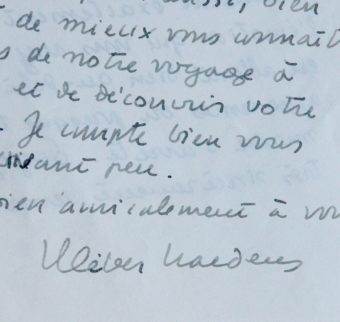 aussi, bien
de mieux vous connaît
s de notre voyage à
et de découvrir votre
. Je compte bien vous
avant peu.
bien amicalement à vou
Kléber Haedens